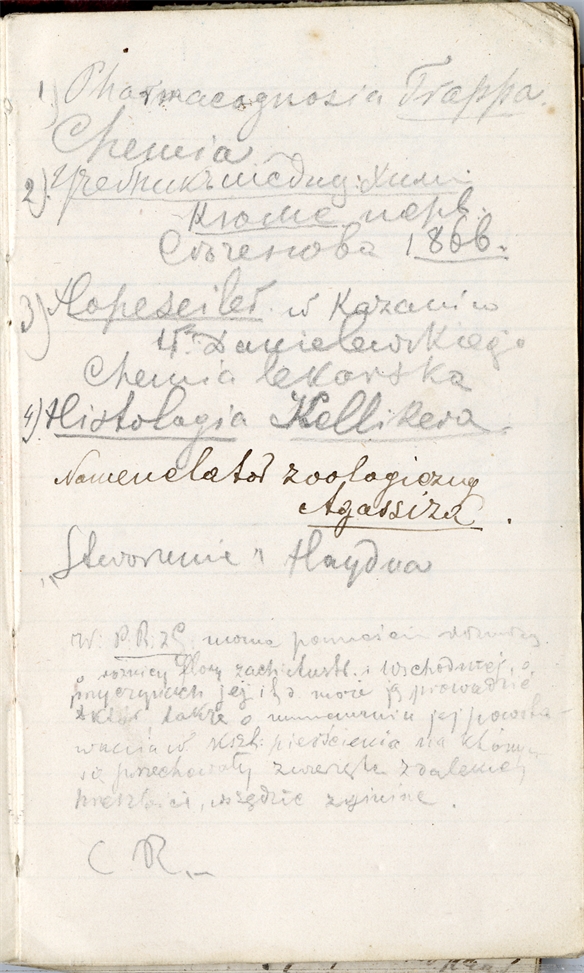 1) Pharmacognosia Trappa.
Chemia
2). Учебникъ медиц: Хим:
Кюме перв.
Соченова 1866.
3) Hopeseiler w Kazaniu
Danielewskiego
Chemia lekarska
4). Histologia Kellikera.
Nomenclator zoologiczny
Agassiza.
„Stworzenie" Haydna
W: P. R. z G. można pomieścić
o różnicy flory zach: Austr. i wschodniej, o
przyczynach jej i co może ją prowadzić
także o mniemaniu jej powsta-
wania w kszt: pierścienia na którym
się przechowały zwierzęta z dalekiej
przeszłości, wszędzie zginione.
C R.